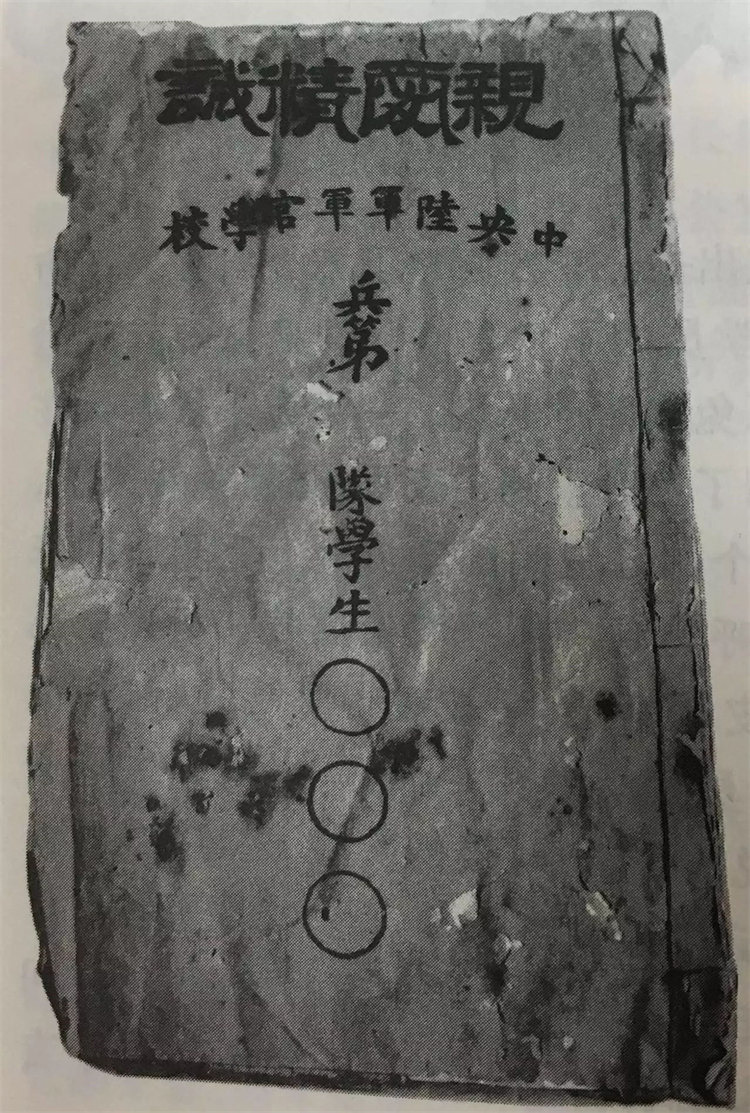 親愛精誠
中央陸軍軍官學校
兵第　隊學生○○○